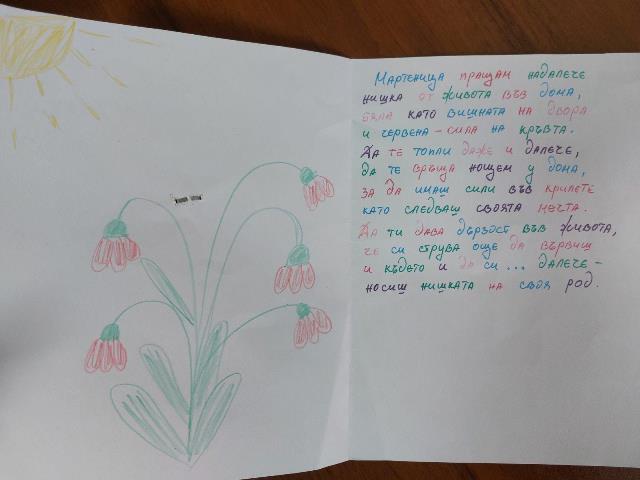 Мартеница пращам надалече
нишка от живота във дома,
бяла като вишната на двора
и червена – сила на кръвта.
Да те топли даже и далече,
да те връща нощем у дома,
за да имаш сили във крилете
като следваш своята мечта.
Да ти дава дързост във живота,
че си струва още да вървиш
и където и да си... далече –
носиш нишката на своя род.